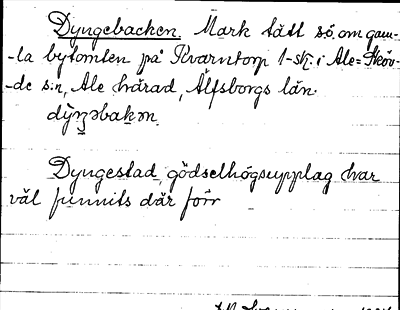 Dyngebacken. Mark tätt s.ö. om gam-
-la bytomten på Kvarntorp 1-sk. i Ale=Sköv-
-de s:n, Ale härad, Älfsborgs län.
dyŋəbakən.
Dyngestad, gödselhögsupplag har
väl funnits där förr